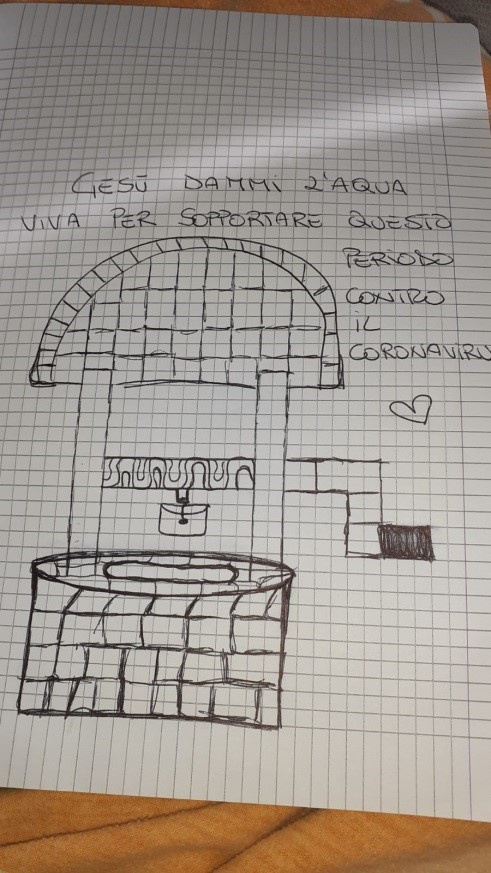 GESŪ DAMMI L'AQUA
VIVA PER SOPPORTARE QUESTO
PERIODO
CONTRO
IL
CORONAVIRU